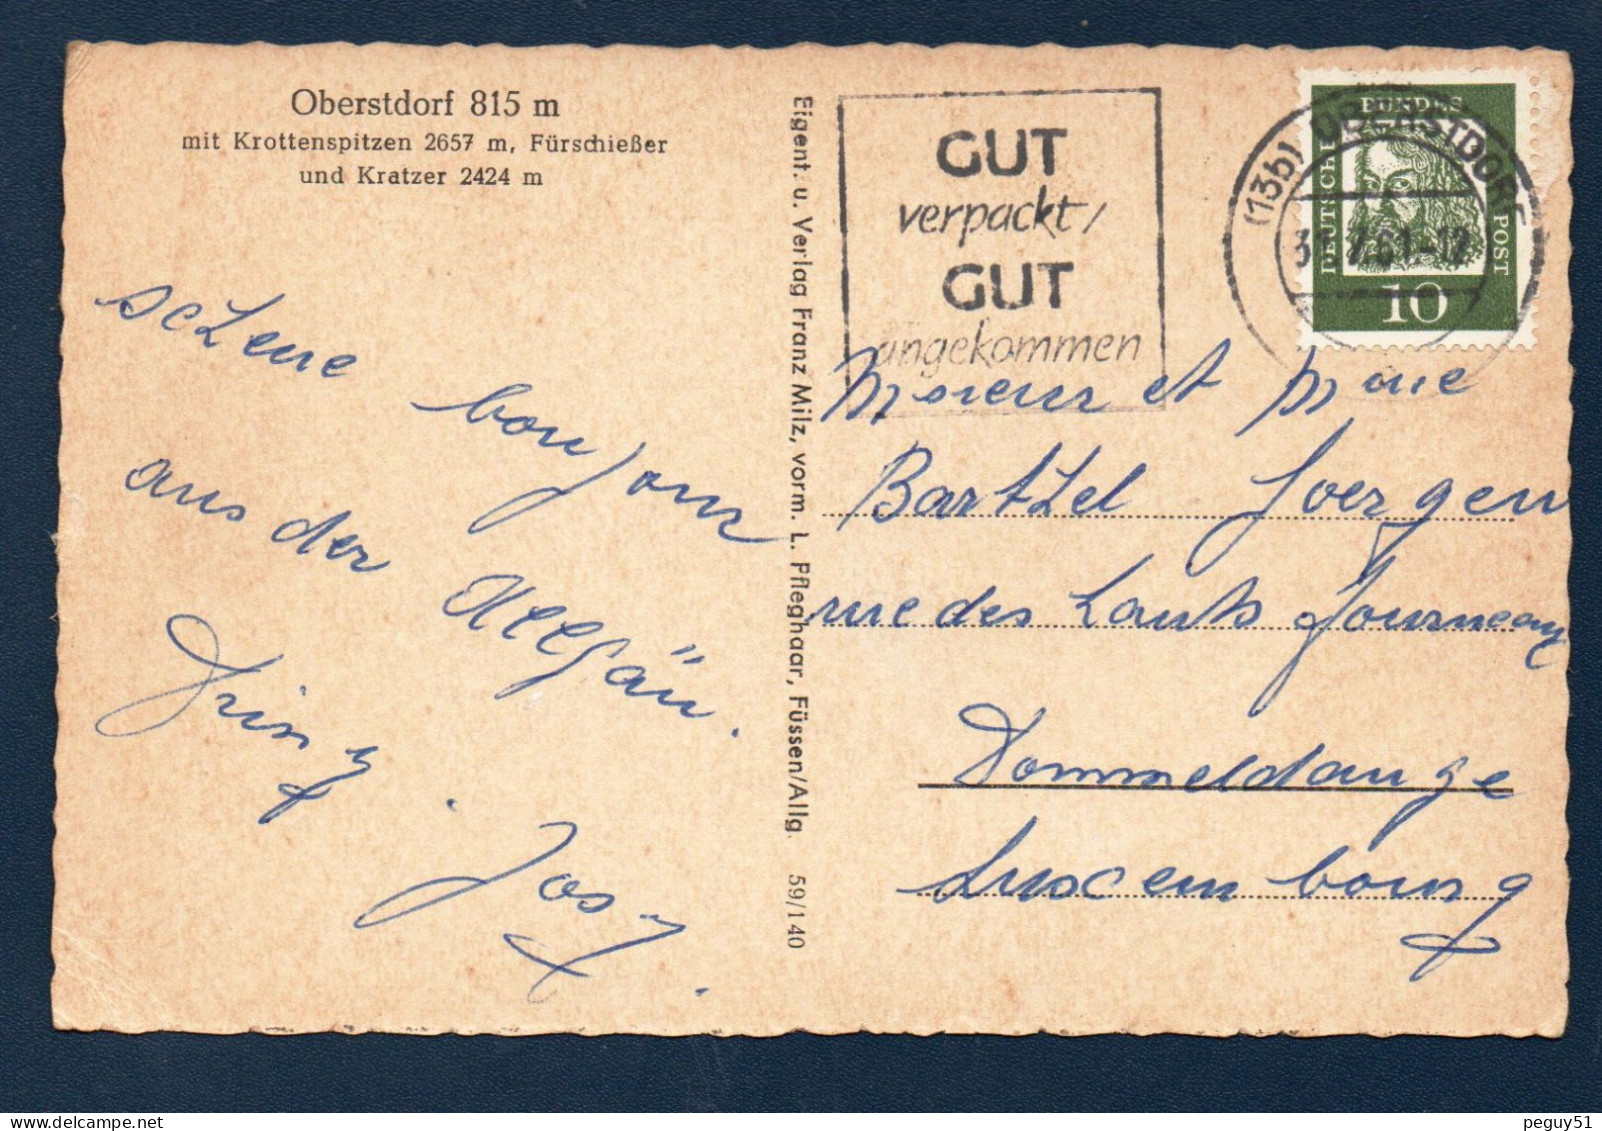 Oberstdorf 815 m
mit Krottenspitzen 2657 m, Fürschießer
und Kratzer 2424 m
scheue bonjour
aus der Allgäu.
Josy.
Eigent. u. Verlag Franz Milz, vorm. L. Pfleghaar, Füssen/Allg. 59/140
GUT
verpackt/
GUT
angekommen
(13b) OBERSTDORF
61-12
DEUTSCHE BUNDES POST
10
et Mme
Barthel Joergen
rue des Hauts Fourneaux
Dommeldange
Luxembourg
peguy51